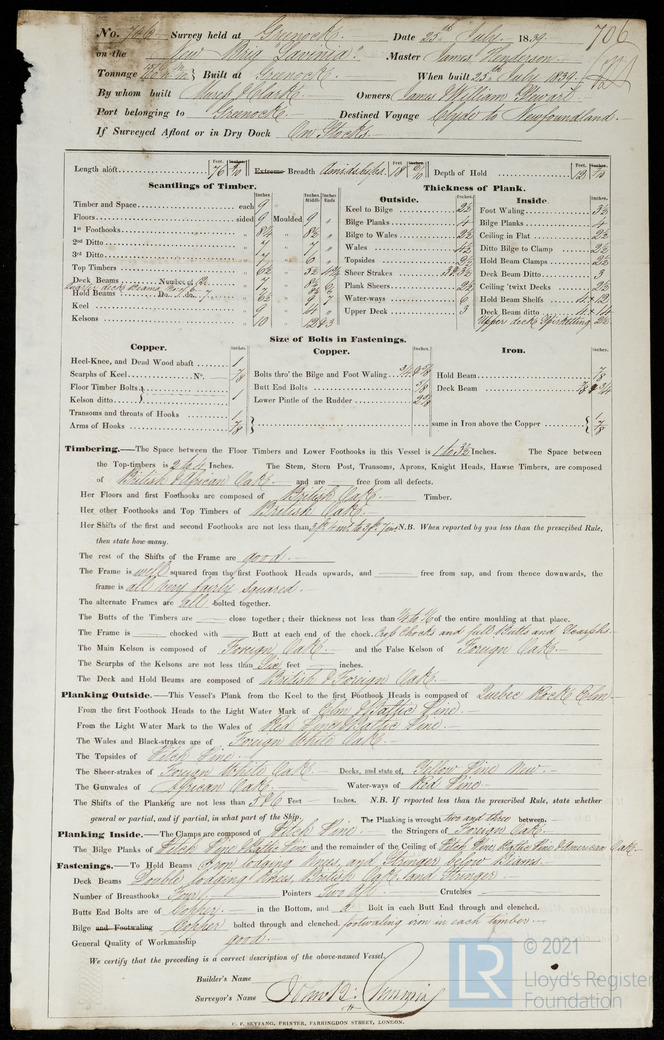 No. 706 Survey held at Greenock Date 25th July 1839 706
on the New Brig "Lavinia" Master James Henderson
Tonnage Built at Greenock When built 25th July 1839
By whom built Owners James William Stewart
Port belonging to Greenock Destined Voyage Clyde to Newfoundland
If Surveyed Afloat or in Dry Dock On Stocks
Length aloft 76 Extreme Breadth Amidships 18 Depth of Hold 12
Scantlings of Timber. Thickness of Plank.
Outside. Inside.
Timber and Space each 9 Keel to Bilge 2½ Foot Waling 3½
Floors sided 9 Moulded 9 Bilge Planks 4 Bilge Planks 4
1st Foothooks Bilge to Wales 2½ Ceiling in Flat 2½
2nd Ditto 7 7 Wales 4½ Ditto Bilge to Clamp 2½
3rd Ditto 7 6 Topsides 2½ Hold Beam Clamps 2½
Top Timbers 6½ Sheer Strakes Deck Beam Ditto 3
Deck Beams Number of Plank Sheers 2½ Ceiling 'twixt Decks 2½
Hold Beams Do. Do. 7 Water-ways 6 Hold Beam Shelfs
Keel 9 Upper Deck 3 Deck Beam ditto
Kelsons 10 Upper deck Spirketting 2½
Size of Bolts in Fastenings.
Copper. Copper. Iron.
Heel-Knee, and Dead Wood abaft 1
Scarphs of Keel No. 7/8 Bolts thro' the Bilge and Foot Waling Hold Beam 7/8
Floor Timber Bolts Butt End Bolts 5/8 Deck Beam
Kelson ditto 1 Lower Pintle of the Rudder
Transoms and throats of Hooks 1
Arms of Hooks 7/8 same in Iron above the Copper 1 7/8
Timbering.—The Space between the Floor Timbers and Lower Foothooks in this Vessel is 1 to 3½ Inches. The Space between
the Top-timbers is 2 to 4 Inches. The Stem, Stern Post, Transoms, Aprons, Knight Heads, Hawse Timbers, are composed
of British & African Oak and are free from all defects.
Her Floors and first Foothooks are composed of British Oak Timber.
Her other Foothooks and Top Timbers of British Oak
Her Shifts of the first and second Foothooks are not less than N.B. When reported by you less than the prescribed Rule,
then state how many.
The rest of the Shifts of the Frame are good
The Frame is well squared from the first Foothook Heads upwards, and free from sap, and from thence downwards, the
frame is all very fairly squared.
The alternate Frames are all bolted together.
The Butts of the Timbers are close together; their thickness not less than of the entire moulding at that place.
The Frame is chocked with Butt at each end of the chock. Chocks and full Butts and Scarphs
The Main Kelson is composed of Foreign Oak and the False Kelson of Foreign Oak
The Scarphs of the Kelsons are not less than Six feet inches.
The Deck and Hold Beams are composed of British & Foreign Oak
Planking Outside.—This Vessel's Plank from the Keel to the first Foothook Heads is composed of Quebec Rock Elm
From the first Foothook Heads to the Light Water Mark of Elm & Baltic Pine
From the Light Water Mark to the Wales of Red Pine & Baltic Pine
The Wales and Black-strakes are of Foreign White Oak
The Topsides of Pitch Pine
The Sheer-strakes of Foreign White Oak Decks, and state of, Yellow Pine New
The Gunwales of African Oak Water-ways of Red Pine
The Shifts of the Planking are not less than 5 & 6 Feet Inches. N.B. If reported less than the prescribed Rule, state whether
general or partial, and if partial, in what part of the Ship. The Planking is wrought two and three between.
Planking Inside.—The Clamps are composed of Pitch Pine the Stringers of Foreign Oak
The Bilge Planks of Pitch Pine & Baltic Pine and the remainder of the Ceiling of Pitch Pine, Baltic Pine & American Oak
Fastenings.—To Hold Beams Iron lodging Knees, and Stringer below Beams
Deck Beams Double lodging Knees, British Oak and Stringer
Number of Breasthooks Four Pointers Two Aft Crutches
Butts End Bolts are of Copper in the Bottom, and a Bolt in each Butt End through and clenched.
Bilge and Footwaling Copper bolted through and clenched, footwaling iron in each timber
General Quality of Workmanship good
We certify that the preceding is a correct description of the above-named Vessel.
Builder's Name
Surveyor's Name
C. F. SEYFANG, PRINTER, FARRINGDON STREET, LONDON.
LR © 2021
Lloyd's Register
Foundation